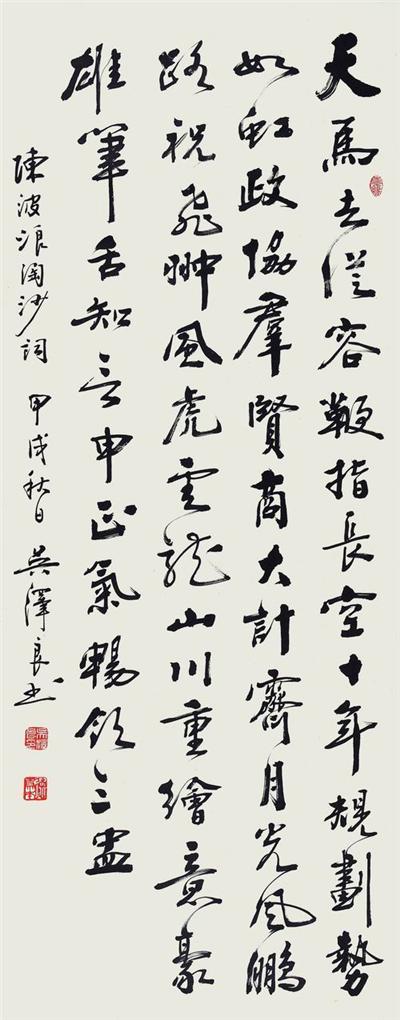 天馬去從容鞭指長空十年規劃勢
如虹政協羣賢商大計霽月光風鵬
路祝飛翀風虎雲龍山川重繪意豪
雄筆舌知言申正氣暢飲三盅
陳波浪淘沙詞 甲戌秋日 吳澤良書